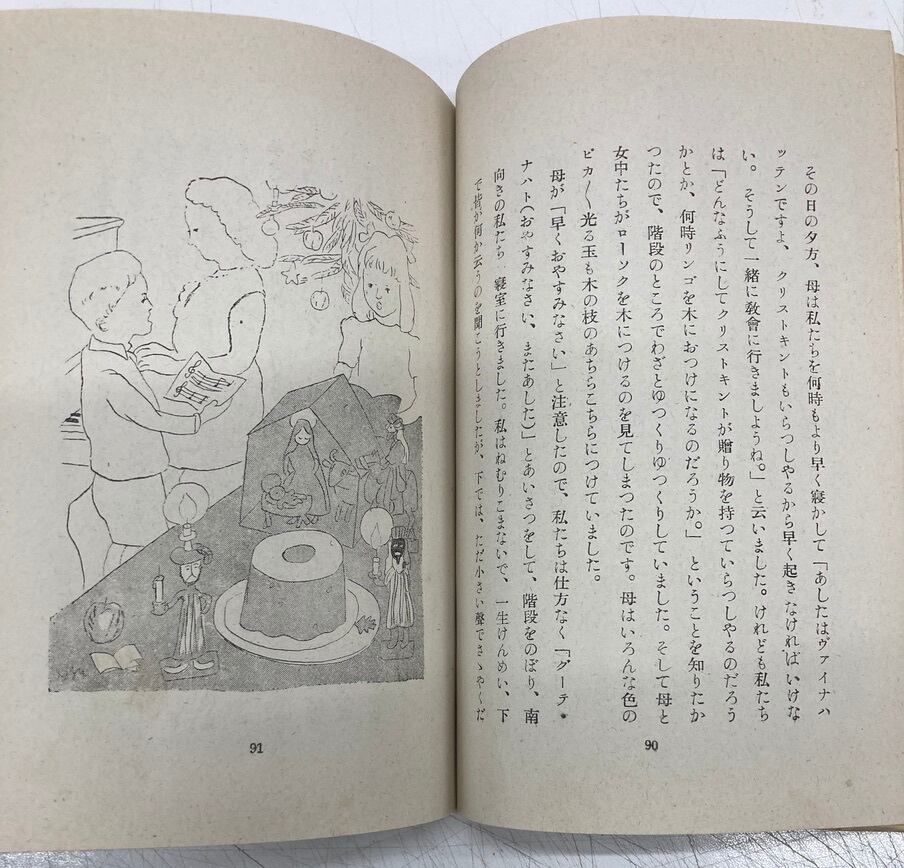 その日の夕方、母は私たちを何時もより早く寝かして「あしたはヴァイナハ
ッテンですよ、クリストキントもいらつしやるから早く起きなければいけな
い。そうして一緒に敎會に行きましようね。」と云いました。けれども私たち
は「どんなふうにしてクリストキントが贈り物を持つていらつしやるのだろう
かとか、何時リンゴを木におつけになるのだろうか。」ということを知りたか
つたので、階段のところでわざとゆつくりゆつくりしていました。そして母と
女中たちがローソクを木につけるのを見てしまつたのです。母はいろんな色の
ピカ〳〵光る玉も木の枝のあちらこちらにつけていました。
母が「早くおやすみなさい」と注意したので、私たちは仕方なく「グーテ・
ナハト(おやすみなさい、またあした)」とあいさつをして、階段をのぼり、南
向きの私たち、寝室に行きました。私はねむりこまないで、一生けんめい、下
で皆が何か云うのを聞こうとしましたが、下では、ただ小さい聲でさゝやくだ
90
91